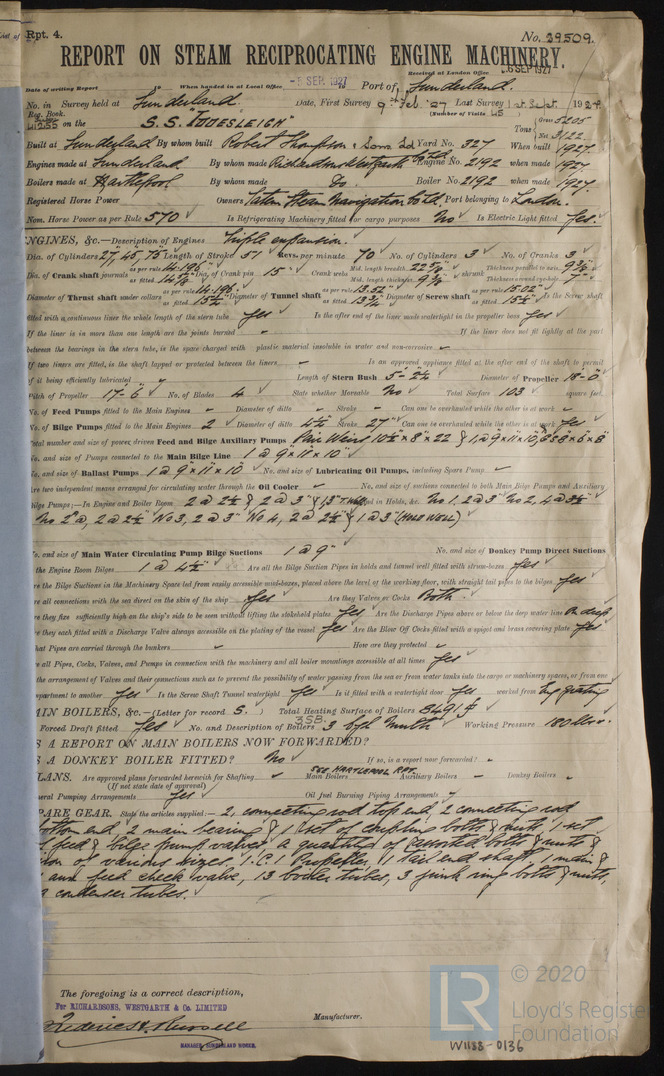 Rpt. 4.
No. 39509.
REPORT ON STEAM RECIPROCATING ENGINE MACHINERY.
Received at London Office 6 SEP 1927
Date of writing Report 19 When handed in at Local Office -5 SEP. 1927 19 Port of Sunderland.
No. in Survey held at Sunderland. Date, First Survey 9th Feb. '27 Last Survey 1st Sept. 1927
Reg. Book. (Number of Visits 45)
41255 on the S.S. "IDDESLEIGH" Tons Gross 5205 Net 3122
Built at Sunderland By whom built Robert Thompson & Sons Ld Yard No. 327 When built 1927.
Engines made at Sunderland By whom made Richardsons Westgarth & Co. Ld Engine No. 2192 when made 1927
Boilers made at Hartlepool By whom made Do. Boiler No. 2192 when made 1927.
Registered Horse Power Owners Tatem Steam Navigation Co Ld. Port belonging to London.
Nom. Horse Power as per Rule 570 Is Refrigerating Machinery fitted for cargo purposes No Is Electric Light fitted Yes.
ENGINES, &c.—Description of Engines Triple expansion.
Dia. of Cylinders 27, 45, 75 Length of Stroke 51 Revs. per minute 70 No. of Cylinders 3 No. of Cranks 3
Dia. of Crank shaft journals as per rule 14.196 as fitted Dia. of Crank pin 15" Crank webs Mid. length breadth 22 5/8 Mid. length thickness 9 3/8 shrunk Thickness parallel to axis 9 3/8 Thickness around eye-hole 7"
Diameter of Thrust shaft under collars as per rule 14.196 as fitted 15 1/4 Diameter of Tunnel shaft as per rule 13.52 as fitted 13 3/4 Diameter of Screw shaft as per rule 15.02 as fitted 15 1/4 Is the Screw shaft
fitted with a continuous liner the whole length of the stern tube Yes Is the after end of the liner made watertight in the propeller boss Yes
If the liner is in more than one length are the joints burned - If the liner does not fit tightly at the part
between the bearings in the stern tube, is the space charged with plastic material insoluble in water and non-corrosive -
If two liners are fitted, is the shaft lapped or protected between the liners - Is an approved appliance fitted at the after end of the shaft to permit
of it being efficiently lubricated - Length of Stern Bush 5'-2 1/4 Diameter of Propeller 18'-0"
Pitch of Propeller 17'-6 No. of Blades 4 State whether Moveable No Total Surface 103 square feet.
No. of Feed Pumps fitted to the Main Engines - Diameter of ditto - Stroke - Can one be overhauled while the other is at work -
No. of Bilge Pumps fitted to the Main Engines 2 Diameter of ditto 4 1/2 Stroke 27" Can one be overhauled while the other is at work Yes
Total number and size of power driven Feed and Bilge Auxiliary Pumps Pair Weirs 10 1/2 x 8" x 22 & 1 @ 9" x 11" x 10", 8 x 6 x 8
No. and size of Pumps connected to the Main Bilge Line 1 @ 9" x 11" x 10"
No. and size of Ballast Pumps 1 @ 9" x 11" x 10 No. and size of Lubricating Oil Pumps, including Spare Pump -
Are two independent means arranged for circulating water through the Oil Cooler - No. and size of suctions connected to both Main Bilge Pumps and Auxiliary
Bilge Pumps;—In Engine and Boiler Room 2 @ 2 1/2 & 2 @ 3" & 1 3" T. Well and in Holds, &c. No 1, 2 @ 3" No 2, 4 @ 3 1/2
No 2a, 2 @ 2 1/2 No 3, 2 @ 3" No 4, 2 @ 2 1/2 & 1 @ 3" (HOLD WELL)
No. and size of Main Water Circulating Pump Bilge Suctions 1 @ 9" No. and size of Donkey Pump Direct Suctions
to the Engine Room Bilges 1 @ 4 1/2" Are all the Bilge Suction Pipes in holds and tunnel well fitted with strum-boxes Yes
Are the Bilge Suctions in the Machinery Space led from easily accessible mud-boxes, placed above the level of the working floor, with straight tail pipes to the bilges Yes
Are all connections with the sea direct on the skin of the ship Yes Are they Valves or Cocks Both.
Are they fixed sufficiently high on the ship's side to be seen without lifting the stokehold plates Yes Are the Discharge Pipes above or below the deep water line
Are they each fitted with a Discharge Valve always accessible on the plating of the vessel Yes Are the Blow Off Cocks fitted with a spigot and brass covering plate Yes
What Pipes are carried through the bunkers - How are they protected -
Are all Pipes, Cocks, Valves, and Pumps in connection with the machinery and all boiler mountings accessible at all times Yes
Is the arrangement of Valves and their connections such as to prevent the possibility of water passing from the sea or from water tanks into the cargo or machinery spaces, or from one
compartment to another Yes Is the Screw Shaft Tunnel watertight Yes Is it fitted with a watertight door Yes worked from Eng. grating
MAIN BOILERS, &c.—(Letter for record S.) Total Heating Surface of Boilers 8491 #
Is Forced Draft fitted Yes No. and Description of Boilers 3 Cyl. Mult. 3 SB. Working Pressure 180 lbs.
IS A REPORT ON MAIN BOILERS NOW FORWARDED?
IS A DONKEY BOILER FITTED? No If so, is a report now forwarded? -
PLANS. Are approved plans forwarded herewith for Shafting - Main Boilers SEE HARTLEPOOL RPT. Auxiliary Boilers - Donkey Boilers -
(If not state date of approval)
General Pumping Arrangements Yes Oil fuel Burning Piping Arrangements -
SPARE GEAR. State the articles supplied:— 2, connecting rod top end, 2 connecting rod
bottom end, 2 main bearing & 1 set of coupling bolts & nuts, 1 set
of feed & bilge pump valves, a quantity of assorted bolts & nuts &
iron of various sizes. 1. C.I. Propeller, 1 tail end shaft, 1 main &
aux feed check valve, 13 boiler tubes, 3 junk ring bolts & nuts,
condenser tubes.
The foregoing is a correct description,
For RICHARDSONS, WESTGARTH & Co. LIMITED
Frederick H. Russell Manufacturer.
MANAGER, SUNDERLAND WORKS.
LR © 2020
Lloyd's Register
Foundation
W1188-0136